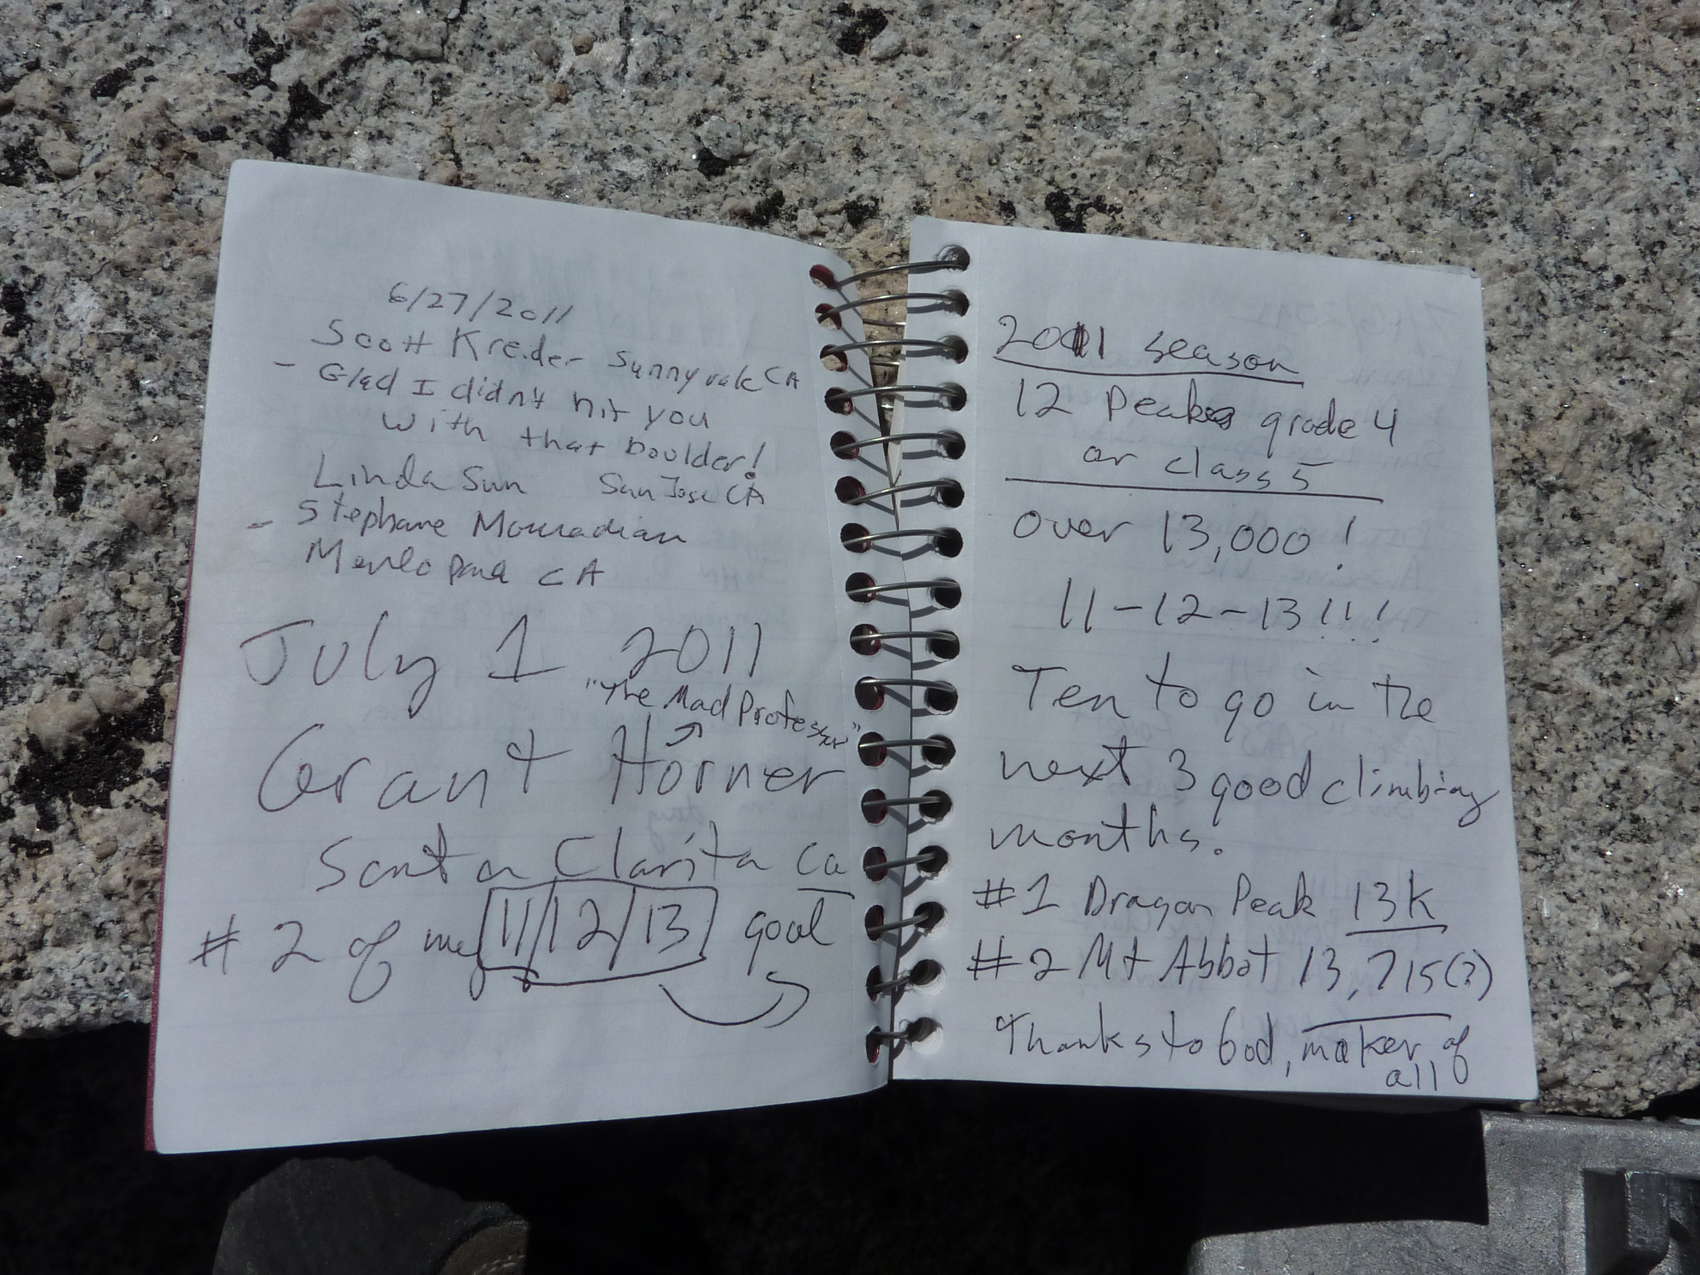 6/27/2011
Scott Kreider Sunnyvale CA
- Glad I didn't hit you
with that boulder!
Linda Sun San Jose CA
- Stephane Mouradian
Menlo Park CA
July 1 2011
"The Mad Professor"
Grant Horner
Santa Clarita Ca
# 2 of my 11/12/13 goal
2011 season
12 Peaks grade 4
or class 5
over 13,000!
11-12-13!!!
Ten to go in the
next 3 good climbing
months.
#1 Dragon Peak 13K
#2 Mt Abbot 13,715(?)
Thanks to God, maker of
all